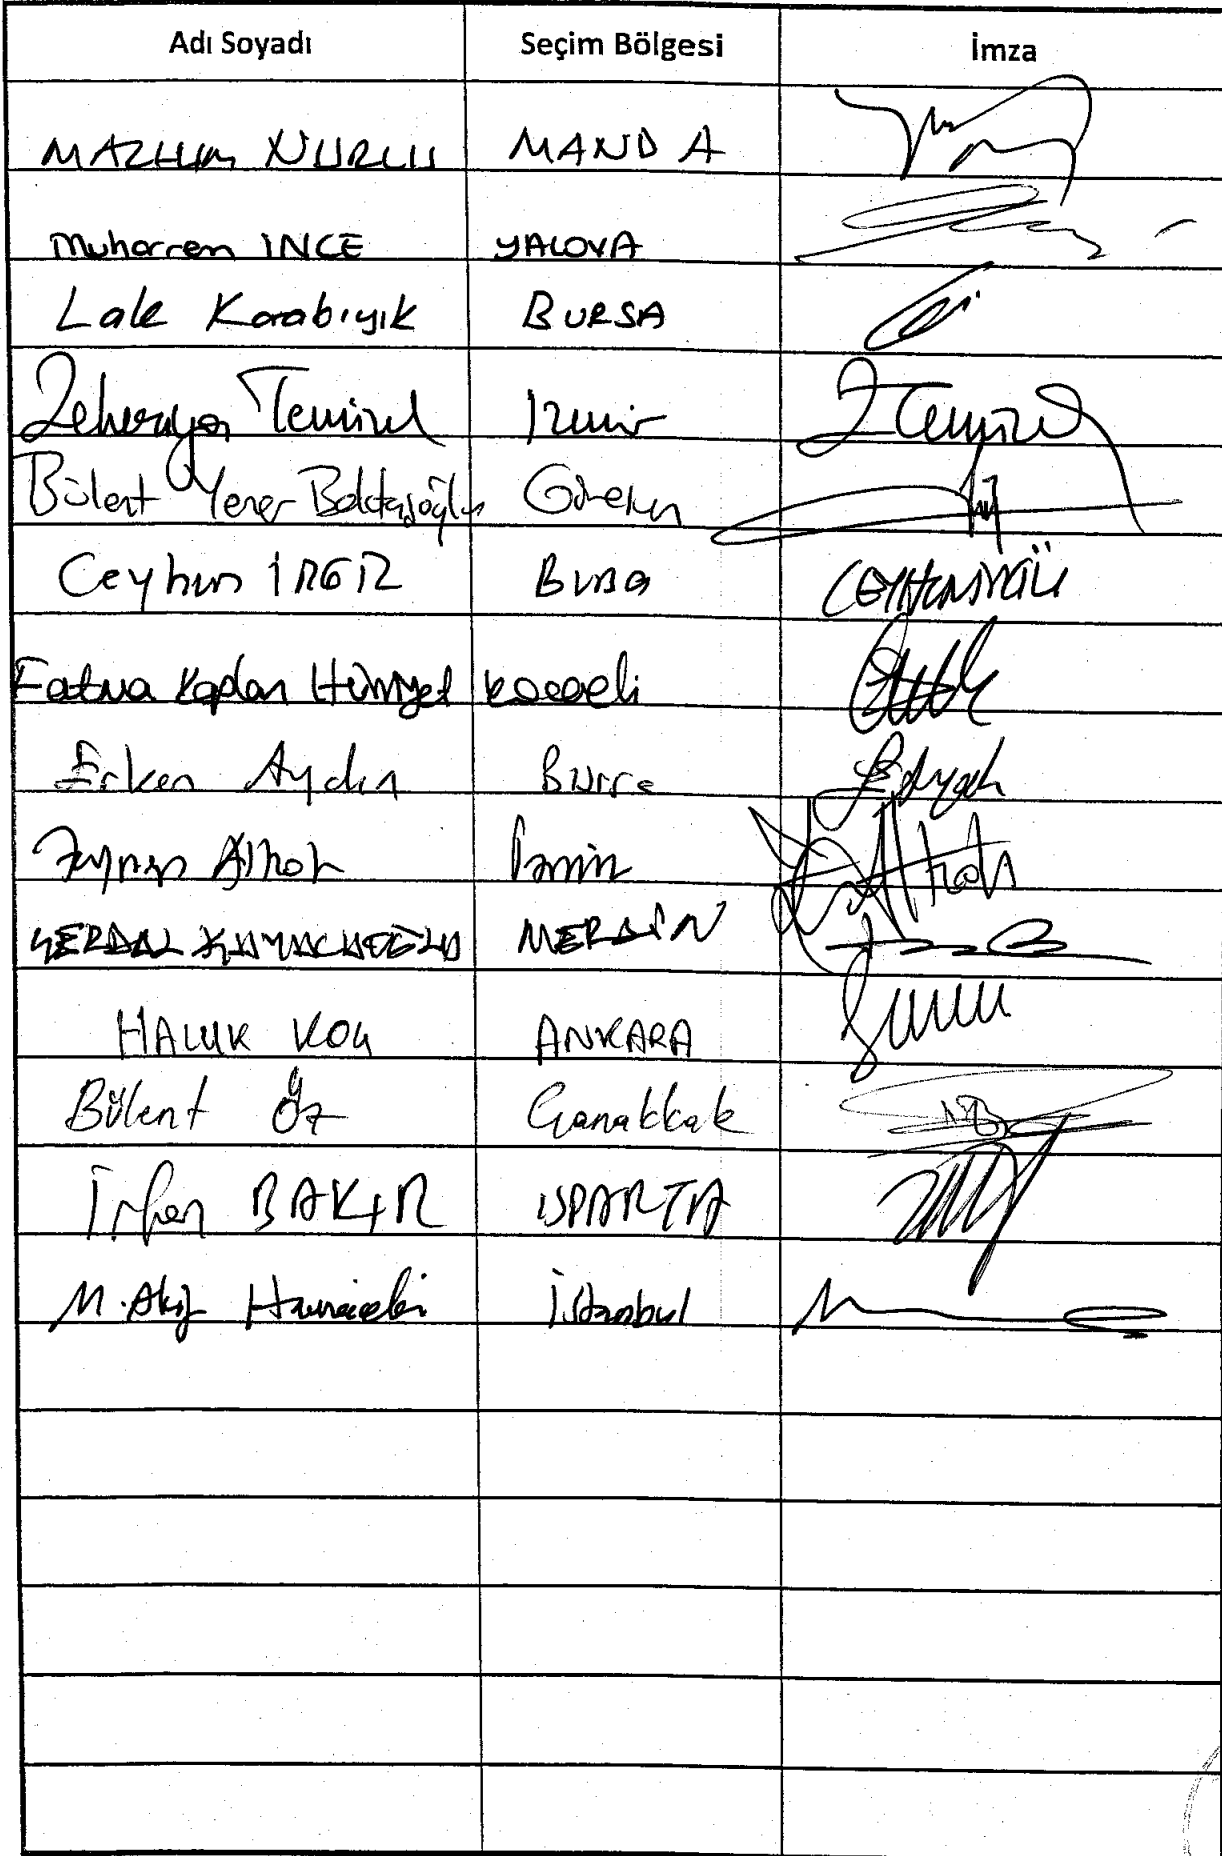 Adı Soyadı Seçim Bölgesi İmza
MAZLUM NURLU MANİSA
Muharrem İNCE YALOVA
Lale Karabıyık BURSA
Zekeriya Temizel İzmir Z Temizel
Bülent Yener Bektaşoğlu Giresun
Ceyhun İRGİL Bursa CEYHUN İRGİL
Fatma Kaplan Hürriyet Kocaeli
Erkan Aydın Bursa
Zeynep Altıok İzmir Altıok
SERDAL KUYUCUOĞLU MERSİN
HALUK KOÇ ANKARA
Bülent Öz Çanakkale
İrfan BAKIR ISPARTA
M. Akif Hamzaçebi İstanbul